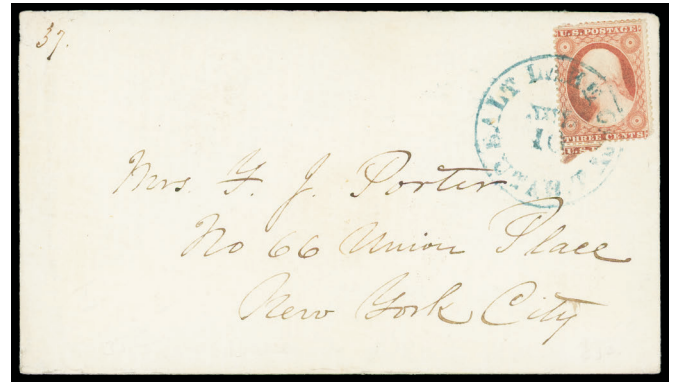 37.
U.S. POSTAGE
THREE CENTS
U.S.
SALT LAKE CITY
10
UTAH.T.
Mrs. F. J. Porter
No 66 Union Place
New York City